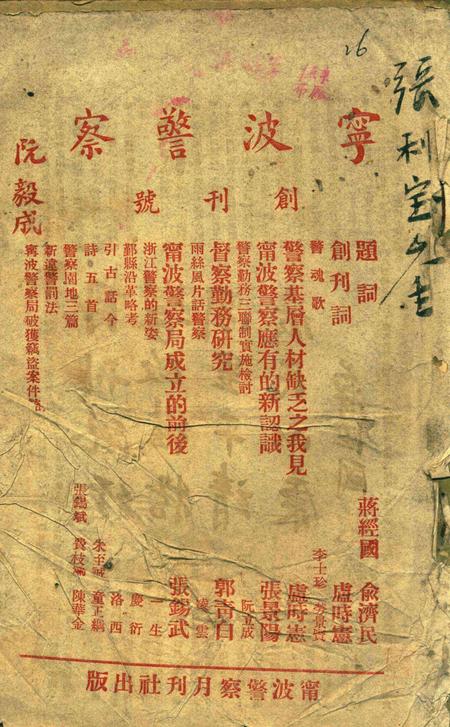 寧波警察
創刊號
阮毅成
題詞 蔣經國 俞濟民
創刊詞 盧時憲
警魂歌 李士珍
警察基層人材缺乏之我見 盧時憲
甯波警察應有的新認識 張景陽
警察勤務三聯制實施檢討 阮立成
督察勤務研究 郭青白
雨絲風片話警察 凌雲
甯波警察局成立的前後 張錫武
浙江警察的新姿 一生
鄞縣沿革略考 慶衍
引古話今 洛西
詩五首
警察園地三篇
新違警罰法
甯波警察局破獲竊盜案件
張錫斌
陳華金
甯波警察月刊社出版
張利
26